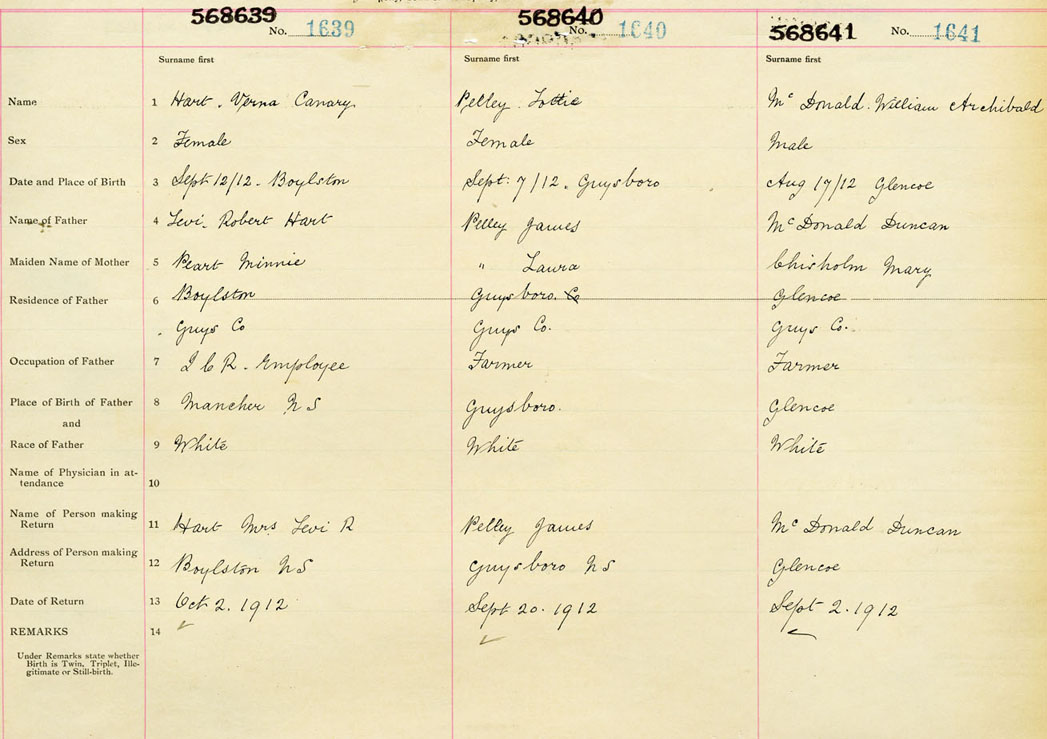 568639 No. 1639 568640 No. 1640 568641 No. 1641
Surname first Surname first Surname first
Name 1 Hart. Verna Canary Pelley Lottie Mc Donald. William Archibald
Sex 2 Female Female Male
Date and Place of Birth 3 Sept 12/12. Boylston Sept. 7/12. Guysboro Aug 17/12 Glencoe
Name of Father 4 Levi. Robert Hart Pelley James Mc Donald Duncan
Maiden Name of Mother 5 Peart Minnie " Laura Chisholm Mary
Residence of Father 6 Boylston Guysboro. Co Glencoe
Guys Co Guys Co. Guys Co.
Occupation of Father 7 I C R. Employee Farmer Farmer
Place of Birth of Father 8 Mancher N S Guysboro. Glencoe
and
Race of Father 9 White White White
Name of Physician in at-
tendance 10
Name of Person making
Return 11 Hart Mrs Levi R Pelley James Mc Donald Duncan
Address of Person making
Return 12 Boylston N S Guysboro N S Glencoe
Date of Return 13 Oct 2. 1912 Sept 20. 1912 Sept 2. 1912
REMARKS 14
Under Remarks state whether
Birth is Twin, Triplet, Ille-
gitimate or Still-birth.